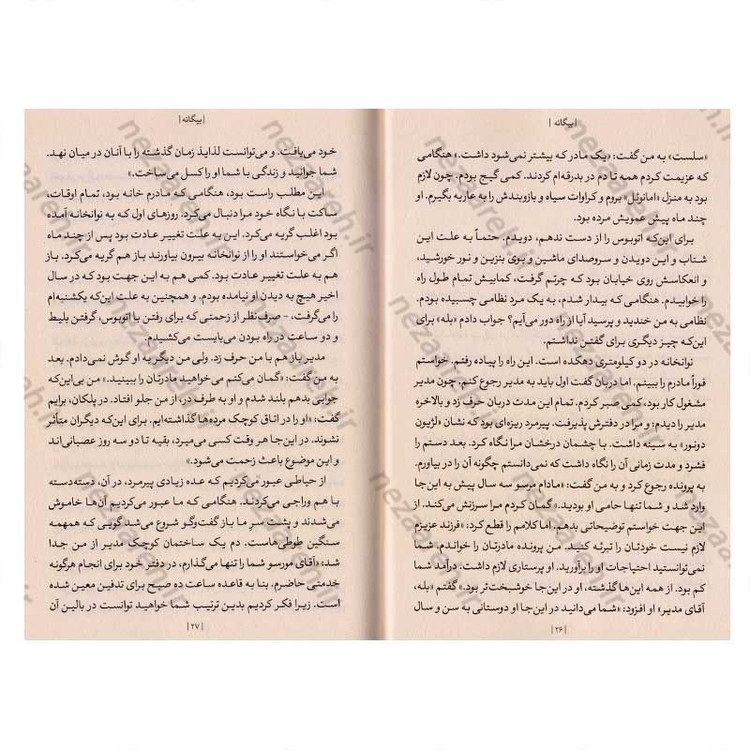 |بیگانه|
«سلست» به من گفت: «یک مادر که بیشتر نمی‌شود داشت.» هنگامی
که عزیمت کردم همه تا دم در بدرقه‌ام کردند. کمی گیج بودم. چون لازم
بود به منزل «امانوئل» بروم و کراوات سیاه و بازوبندش را به عاریه بگیرم. او
چند ماه پیش عمویش مرده بود.
برای این‌که اتوبوس را از دست ندهم، دویدم. حتماً به علت این
شتاب و این دویدن و سروصدای ماشین و بوی بنزین و نور خورشید،
و انعکاسش روی خیابان بود که چرتم گرفت، کمابیش تمام طول راه
را خوابیدم. هنگامی که بیدار شدم، به یک مرد نظامی چسبیده بودم.
نظامی به من خندید و پرسید آیا از راه دور می‌آیم؟ جواب دادم «بله» برای
این‌که چیز دیگری برای گفتن نداشتم.
نوانخانه در دو کیلومتری دهکده است. این راه را پیاده رفتم. خواستم
فوراً مادرم را ببینم. اما دربان گفت اول باید به مدیر رجوع کنم. چون مدیر
مشغول کار بود، کمی صبر کردم. تمام این مدت دربان حرف زد و بالاخره
مدیر را دیدم: و مرا در دفترش پذیرفت. پیرمرد ریزه‌ای بود که نشان «لژیون
دونور» به سینه داشت. با چشمان درخشان مرا نگاه کرد. بعد دستم را
فشرد و مدت زمانی آن را نگاه داشت که نمی‌دانستم چگونه آن را در بیاورم.
به پرونده رجوع کرد و به من گفت: «مادام مرسو سه سال پیش به این‌جا
وارد شد و شما تنها حامی او بودید.» گمان کردم مرا سرزنش می‌کند. از
این جهت خواستم توضیحاتی بدهم. اما کلامم را قطع کرد: «فرزند عزیزم
لازم نیست خودتان را تبرئه کنید. من پرونده مادرتان را خواندم. شما
نمی‌توانستید احتیاجات او را برآورید. او پرستاری لازم داشت. درآمد شما
کم بود. از همه این‌ها گذشته، او در این‌جا خوشبخت‌تر بود.» گفتم «بله،
آقای مدیر» او افزود: «شما می‌دانید در این‌جا او دوستانی به سن و سال
|۲۶|
|بیگانه|
خود می‌یافت. و می‌توانست لذایذ زمان گذشته را با آنان در میان نهد.
شما جوانید و زندگی با شما او را کسل می‌ساخت.»
این مطلب راست بود، هنگامی که مادرم خانه بود، تمام اوقات،
ساکت با نگاه خود مرا دنبال می‌کرد. روزهای اول که به نوانخانه آمده
بود اغلب گریه می‌کرد. این به علت تغییر عادت بود پس از چند ماه
اگر می‌خواستند او را از نوانخانه بیرون بیاورند باز هم گریه می‌کرد. و باز
هم به علت تغییر عادت بود. کمی هم به این جهت بود که در سال
اخیر هیچ به دیدن او نیامده بودم. و همچنین به علت این‌که یکشنبه‌ام
را می‌گرفت، - صرف‌نظر از زحمتی که برای رفتن با اتوبوس، گرفتن بلیط
و دو ساعت در راه بودن می‌بایست می‌کشیدم.
مدیر باز هم با من حرف زد. ولی من دیگر به او گوش نمی‌دادم. بعد
به من گفت: «گمان می‌کنم می‌خواهید مادرتان را ببینید.» من بی‌این‌که
جوابی بدهم بلند شدم و او به طرف در، از من جلو افتاد. در پلکان، برایم
گفت: «او را در اتاق کوچک مرده‌ها گذاشته‌ایم. برای این‌که دیگران متأثر
نشوند. در این‌جا هر وقت کسی می‌میرد، بقیه تا دو سه روز عصبانی‌اند
و این موضوع باعث زحمت می‌شود.»
از حیاطی عبور می‌کردیم که عده زیادی پیرمرد، در آن، دسته‌دسته
با هم وراجی می‌کردند. هنگامی که ما عبور می‌کردیم آن‌ها خاموش
می‌شدند و پشت سر ما باز گفت‌وگو شروع می‌شد گویی که همهمه
سنگین طوطی‌هاست. دم یک ساختمان کوچک مدیر از من جدا
شد؛ «آقای مورسو شما را تنها می‌گذارم، در دفتر خود برای انجام هرگونه
خدمتی حاضرم. بنا به قاعده ساعت ده صبح برای تدفین معین شده
است. زیرا فکر کردیم بدین ترتیب شما خواهید توانست در بالین آن
|۲۷|
nezaareh.ir